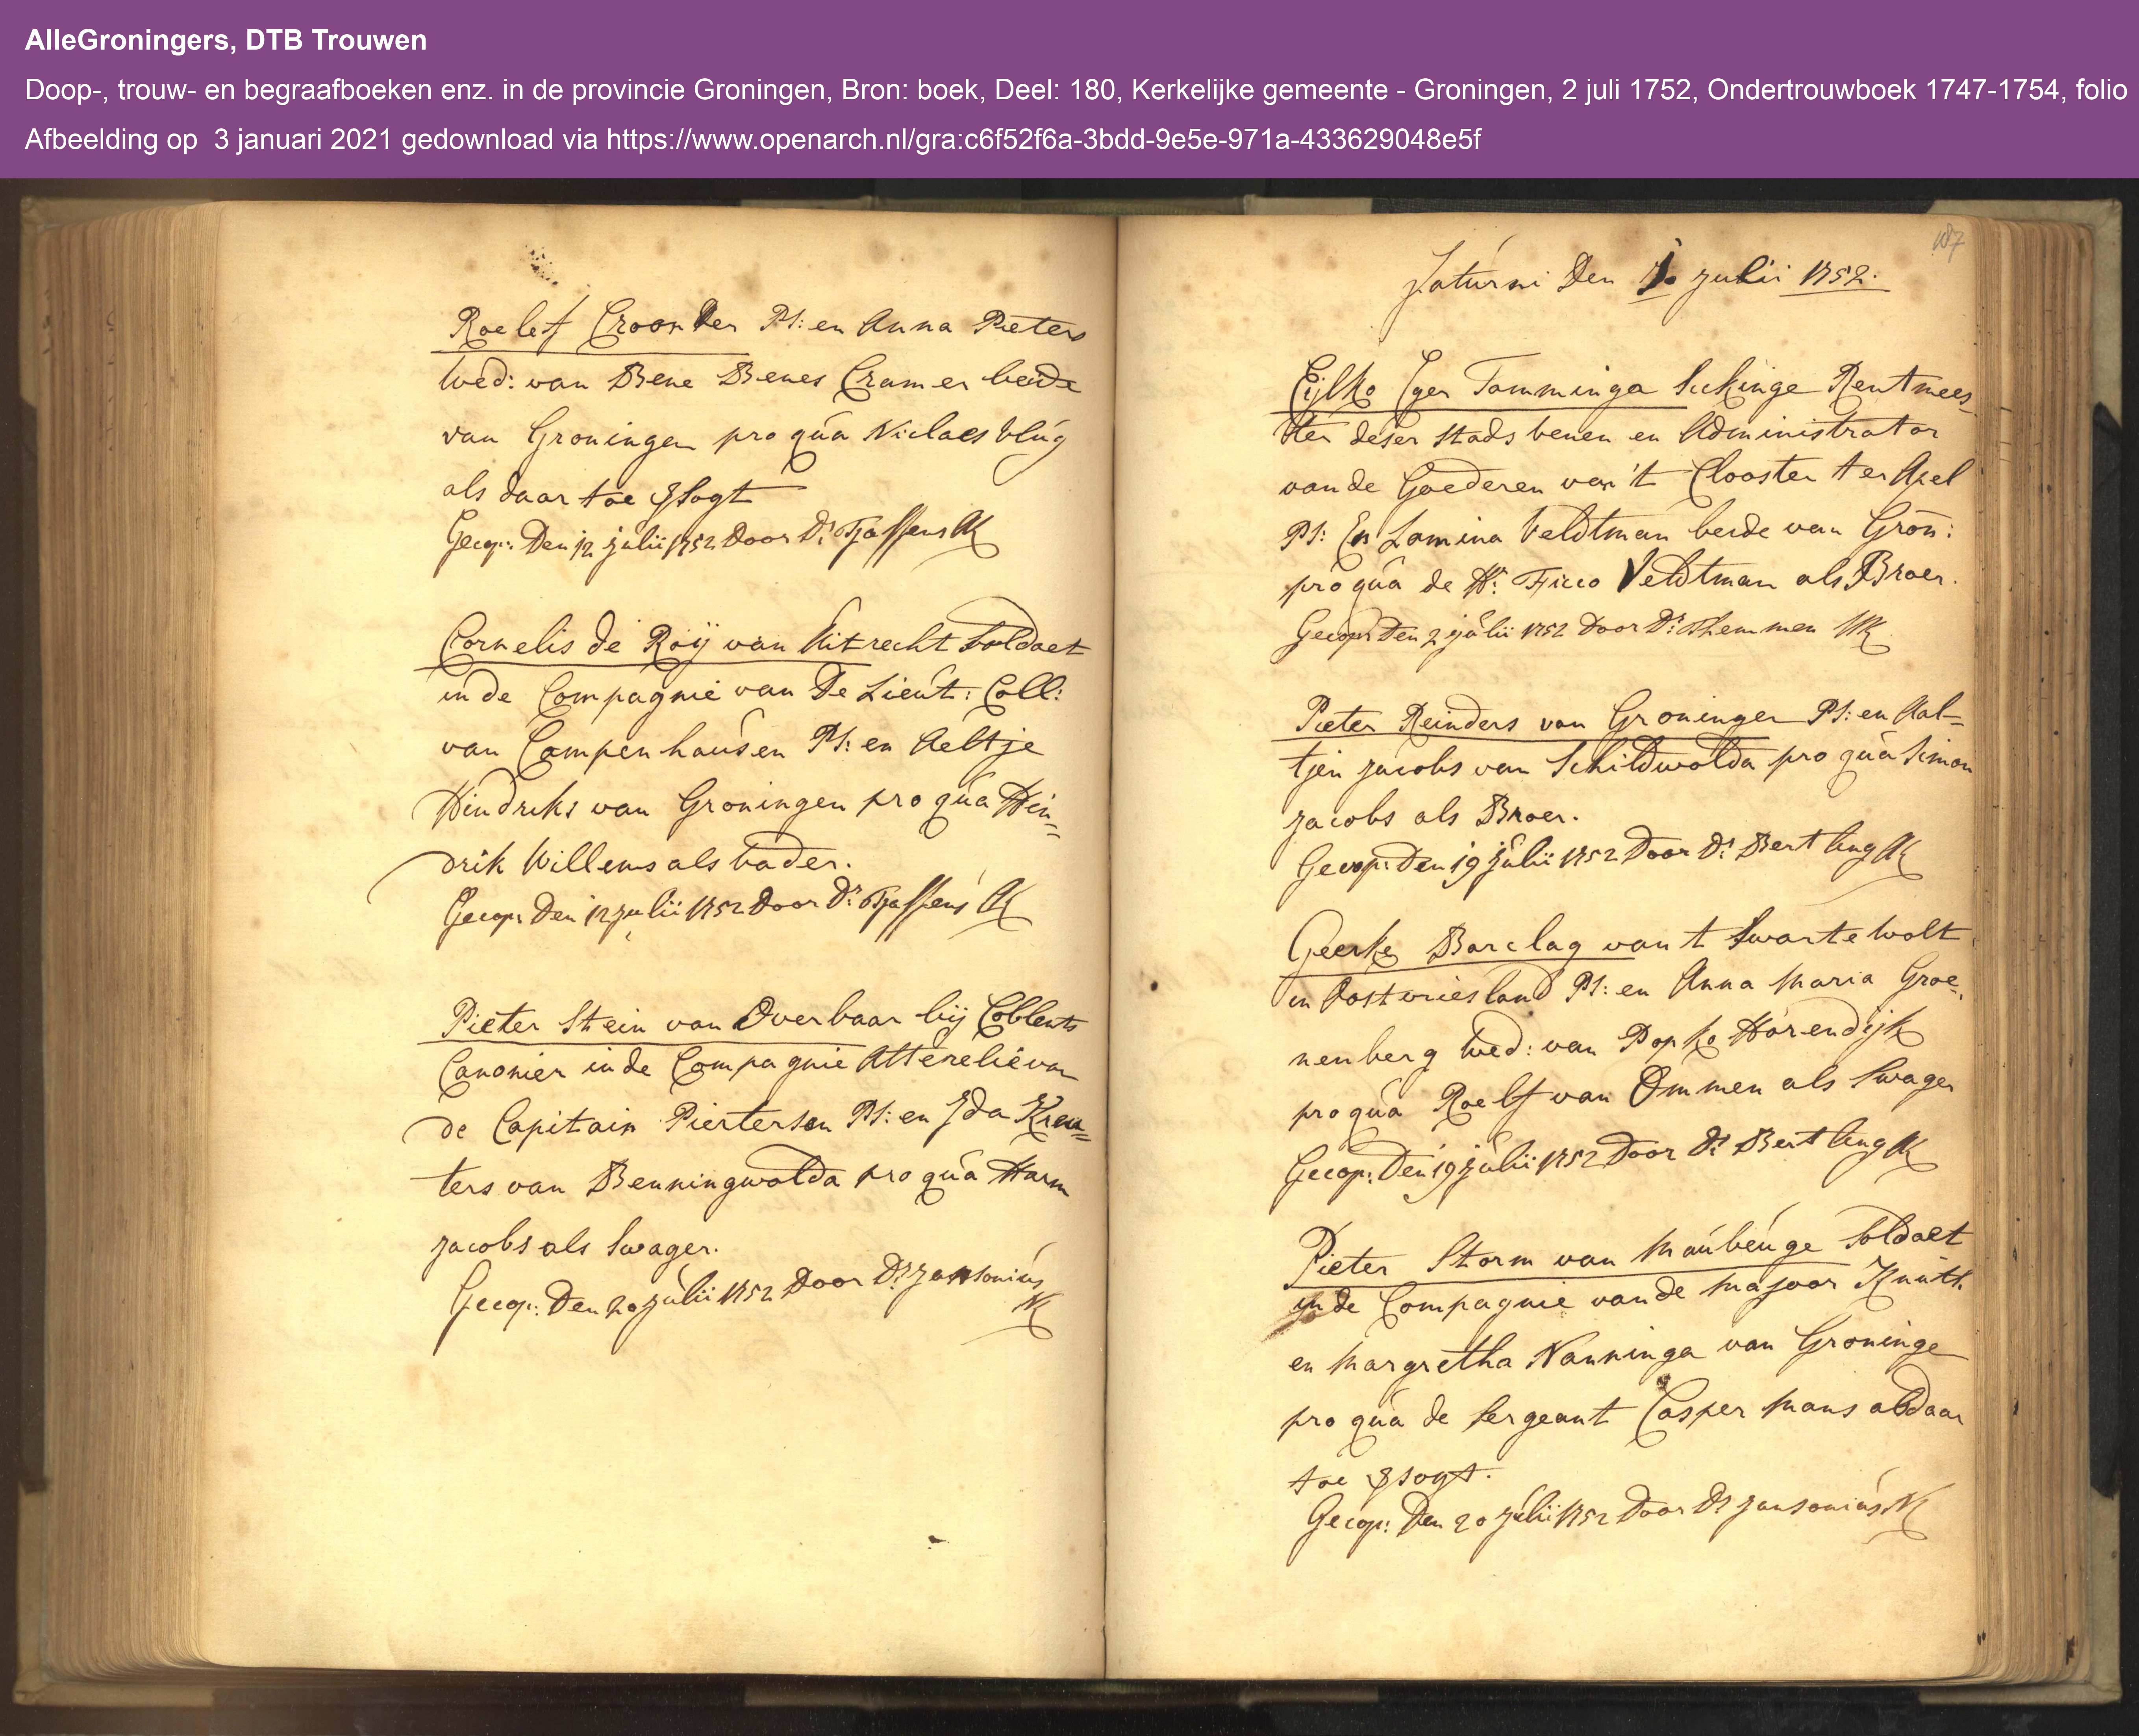 AlleGroningers, DTB Trouwen
Doop-, trouw- en begraafboeken enz. in de provincie Groningen, Bron: boek, Deel: 180, Kerkelijke gemeente - Groningen, 2 juli 1752, Ondertrouwboek 1747-1754, folio
Afbeelding op 3 januari 2021 gedownload via https://www.openarch.nl/gra:c6f52f6a-3bdd-9e5e-971a-433629048e5f
Roelef Croon der Pl: en Anna Pieters
Wed: van Bene Benes Cramer beide
van Groningen pro qua Niclaes Vlug
als daar toe
Gecop: Den 12 julii 1752 Door Ds Tjassens
Cornelis de Roij van Uitrecht Soldaet
in de Compagnie van De Lieut: Coll:
van Campenhausen Pl: en Aeltje
Hindriks van Groningen pro qua Hin=
drik Willems als Vader.
Gecop: Den 12 julii 1752 Door Ds Tjassens
Pieter Stein van Overbaar bij Coblents
Canonier in de Compagnie Atterelie van
de Capitain Pietersen Pl: en Ida Kreu=
ters van Benningwolda pro qua Harm
jacobs als Swager.
Gecop: Den 20 julii 1752 Door Ds jansonius
187
Saturni Den 1 julii 1752.
Eijlko Eger Tamminga Sickinge Rentmees=
ter deser Stads venen en Administrator
van de Goederen van 't Clooster ter Apel
Pl: En Lamina Veldtman beide van Gron:
pro qua de Hr: Ficco Veldtman als Broer.
Gecop: Den 2 julii 1752 Door Ds Themmen
Pieter Reinders van Groningen Pl: en Aal=
tjen jacobs van Schildwolda pro qua Simon
jacobs als Broer.
Gecop: Den 19 julii 1752 Door Ds Bertling
Geerke Barclag van t Swarte Wolt
in Oostvriesland Pl: en Anna Maria Groe=
nenberg Wed: van Popko Horendijk
pro qua Roelf van Ommen als Swager
Gecop: Den 19 julii 1752 Door Ds Bertling
Pieter Storm van Maubeuge Soldaet
in de Compagnie van de Majoor Knuth
en Margretha Nanninga van Groninge
pro qua de Sergeant Casper Mans als daar
toe
Gecop: Den 20 julii 1752 Door Ds jansonius